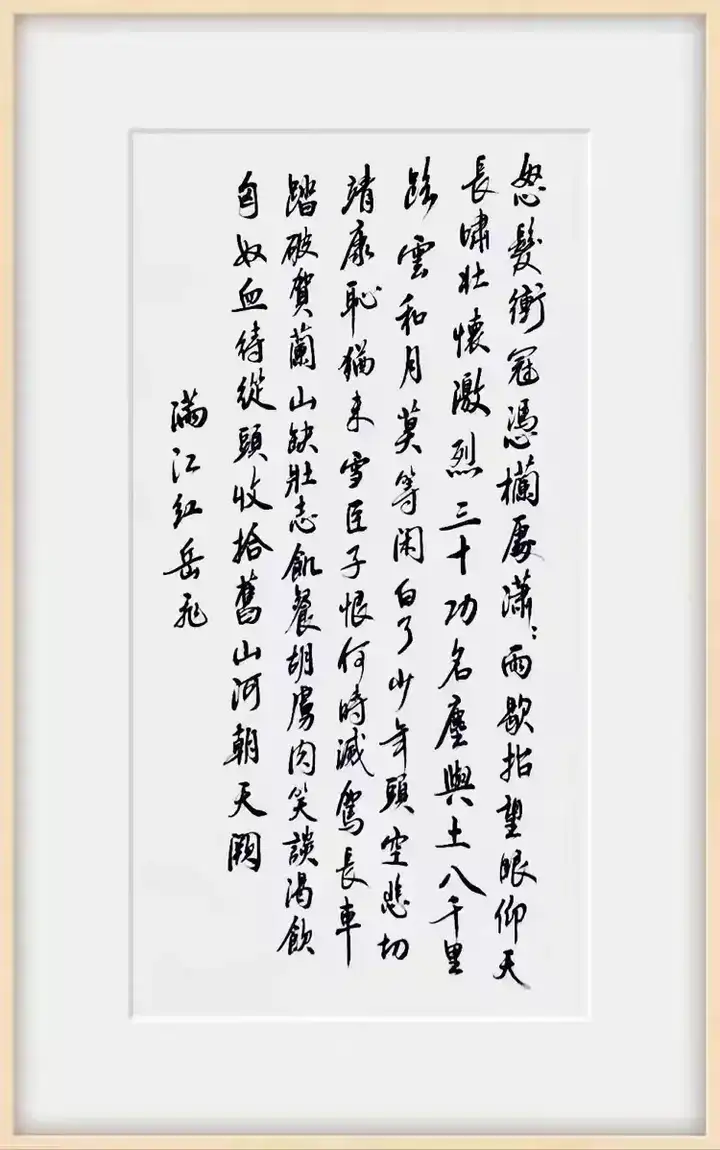 怒髮衝冠憑欄處瀟:雨歇抬望眼仰天
長嘯壯懷激烈三十功名塵與土八千里
路雲和月莫等闲白了少年頭空悲切
靖康恥猶未雪臣子恨何時滅駕長車
踏破賀蘭山缺壯志飢餐胡虜肉笑談渴飲
匈奴血待從頭收拾舊山河朝天闕
滿江紅岳飛